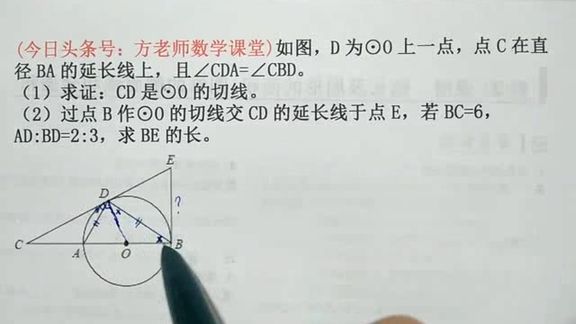 (今日头条号：方老师数学课堂)如图，D为⊙O上一点，点C在直
径BA的延长线上，且∠CDA=∠CBD。
（1）求证：CD是⊙O的切线。
（2）过点B作⊙O的切线交CD的延长线于点E，若BC=6，
AD:BD=2:3，求BE的长。
E
D
?
C
A
O
B